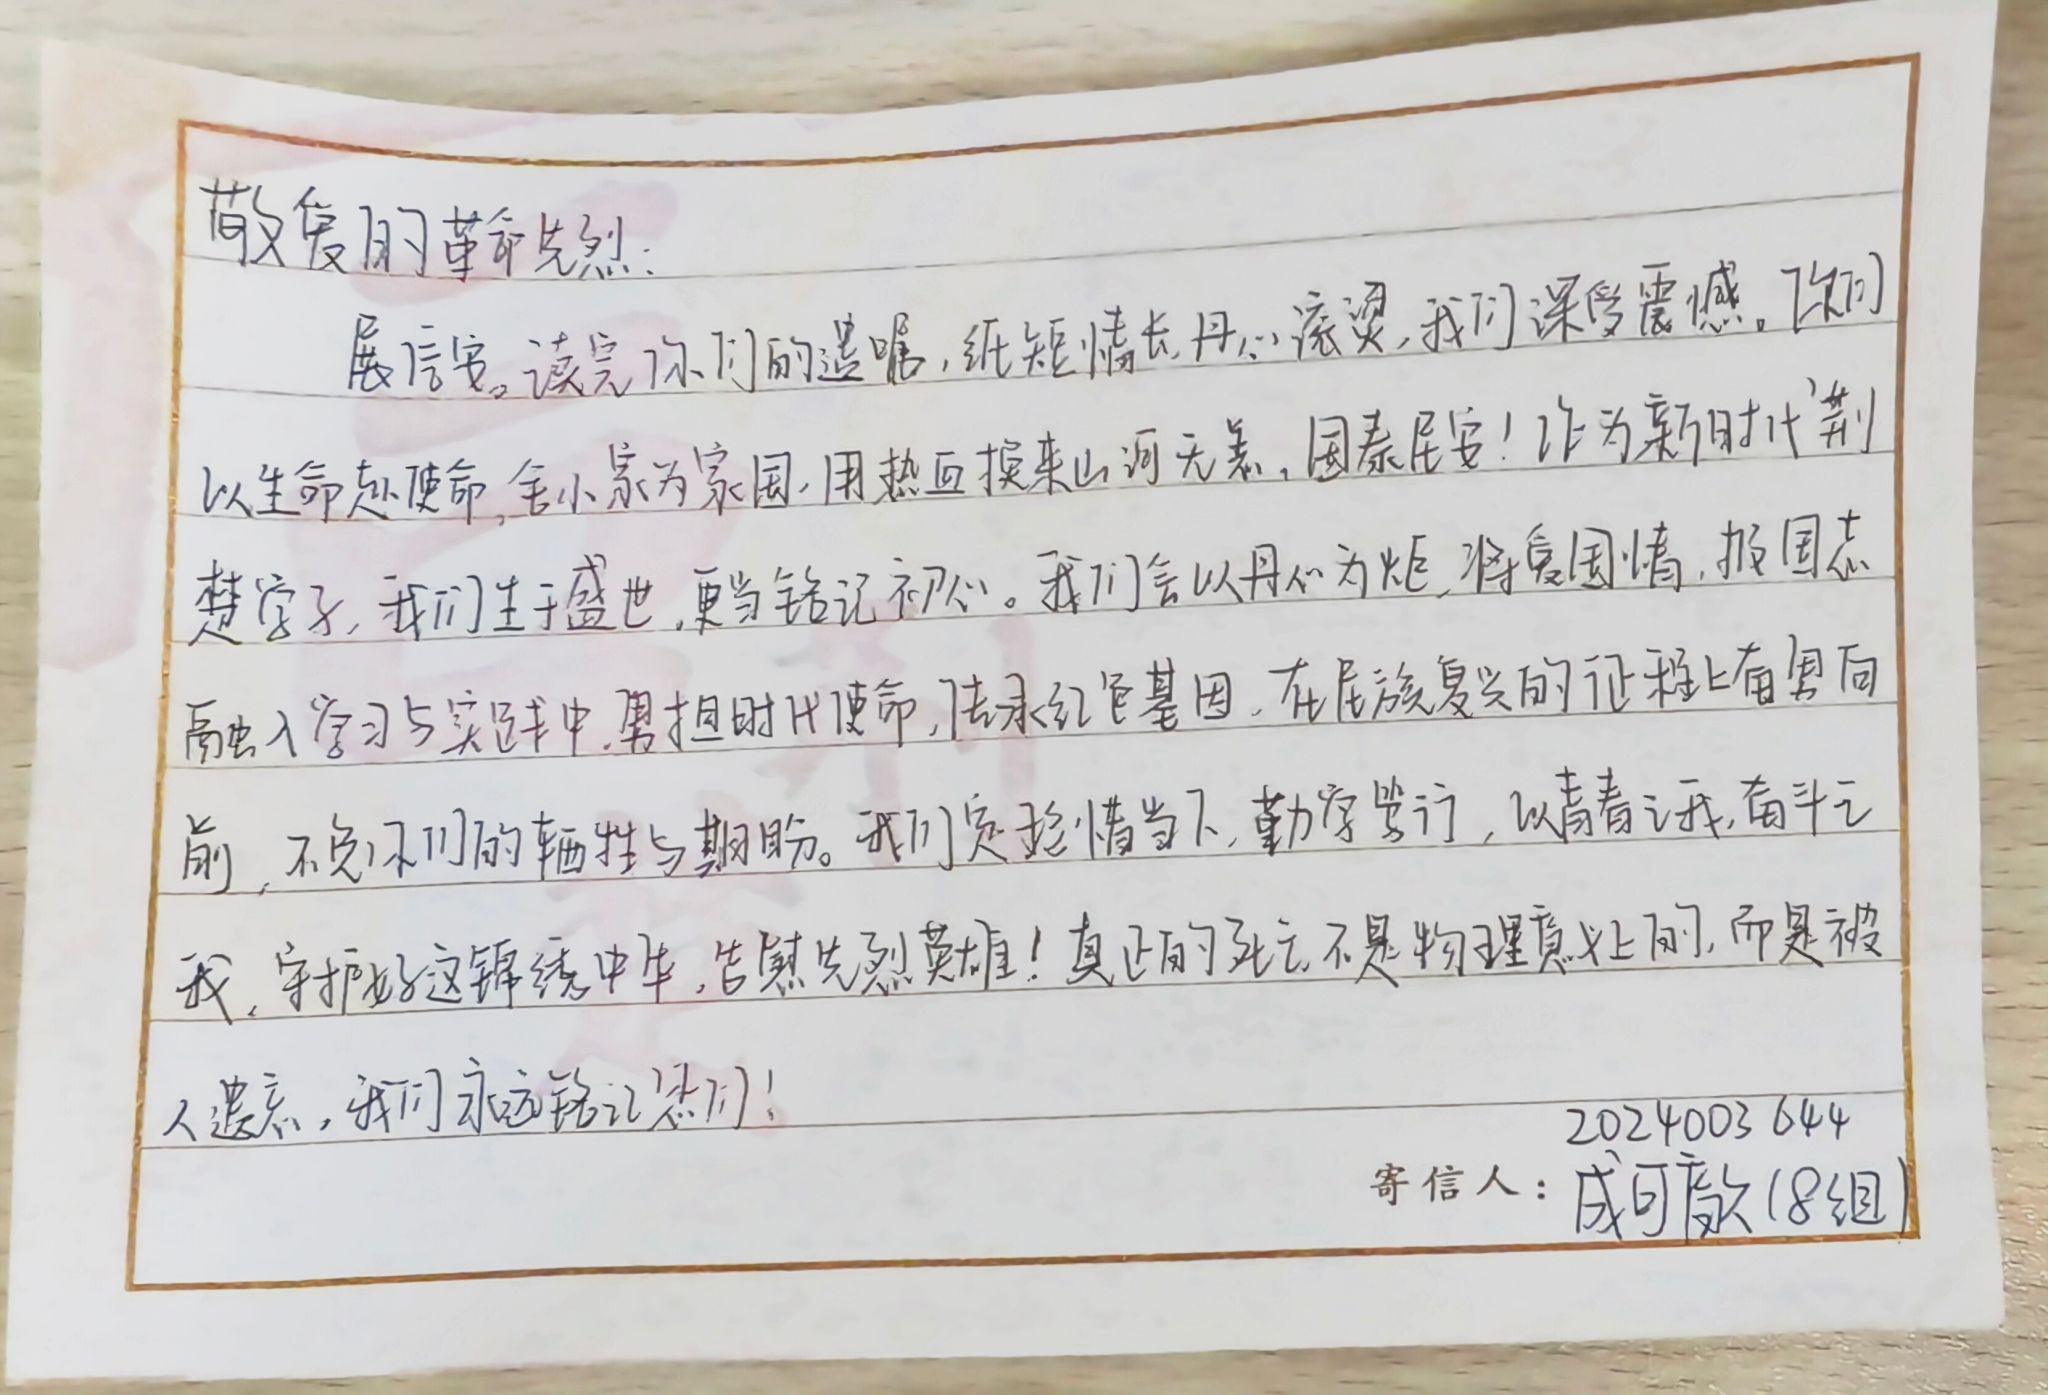 敬爱的革命先烈：
展信安。读完你们的遗嘱，纸短情长，丹心滚烫，我们深受震憾。你们
以生命赴使命，舍小家为家国，用热血换来山河无恙，国泰民安！作为新时代荆
楚学子，我们生于盛世，更当铭记初心。我们会以丹心为炬，将爱国情，报国志
融入学习与实践中，勇担时代使命，传承红色基因，在民族复兴的征程上奋勇向
前，不负你们的牺牲与期盼。我们定珍惜当下，勤学笃行，以青春之我，奋斗之
我，守护好这锦绣中华，告慰先烈英雄！真正的死亡不是物理意义上的，而是被
人遗忘，我们永远铭记您们！
2024003644
寄信人：成可歆（8组）